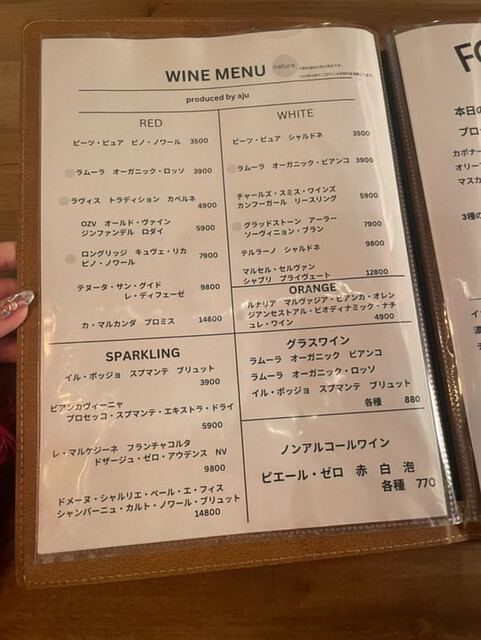 WINE MENU
nature
produced by aju
RED
ピーツ・ピュア ピノ・ノワール 3500
ラムーラ オーガニック・ロッソ 3900
ラヴィス トラディション カベルネ
4900
OZV オールド・ヴァイン
ジンファンデル ロダイ 5900
ロングリッジ キュヴェ・リカ
ピノ・ノワール 7900
テヌータ・サン・グイド 9800
レ・ディフェーゼ
カ・マルカンダ プロミス 14800
WHITE
ピーツ・ピュア シャルドネ 3500
ラムーラ オーガニック・ビアンコ 3900
チャールズ・スミス・ワインズ
カンフーガール リースリング 5900
グラッドストーン アーラー 7900
ソーヴィニョン・ブラン
テルラーノ シャルドネ 9800
マルセル・セルヴァン
シャブリ プライヴェート 12800
ORANGE
ルナリア マルヴァジア・ビアンカ・オレン
ジアンセストアル・ビオディナミック・ナチ
ュレ・ワイン 4900
SPARKLING
イル・ポッジョ スプマンテ ブリュット
3900
ビアンカヴィーニャ
プロセッコ・スプマンテ・エキストラ・ドライ
5900
レ・マルケジーネ フランチャコルタ
ドザージュ・ゼロ・アウデンス NV
9800
ドメーヌ・シャルリエ・ペール・エ・フィス
シャンパーニュ・カルト・ノワール・ブリュット
14800
グラスワイン
ラムーラ オーガニック ビアンコ
ラムーラ オーガニック・ロッソ
イル・ポッジョ スプマンテ ブリュット
各種 880
ノンアルコールワイン
ピエール・ゼロ 赤 白 泡
各種 770
FO
本日の
ブロ
カポナー
オリー
マスカ
3種の